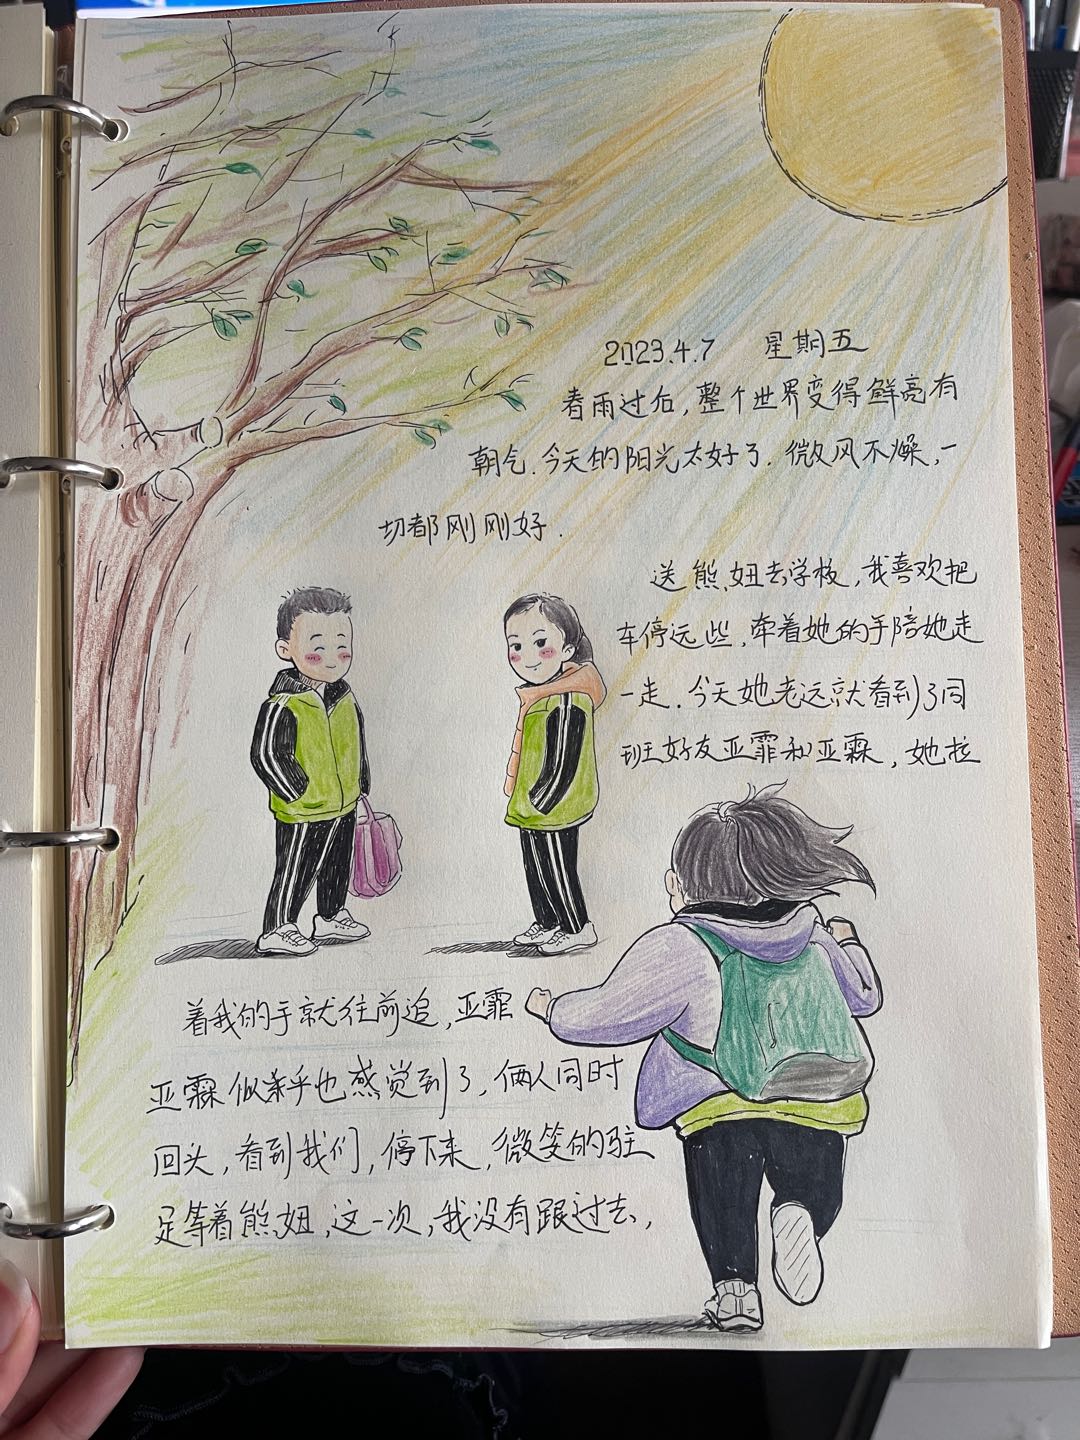 2023.4.7 星期五
春雨过后,整个世界变得鲜亮有
朝气.今天的阳光太好了.微风不燥,一
切都刚刚好.
送熊妞去学校,我喜欢把
车停远些,牵着她的手陪她走
一走.今天她老远就看到了同
班好友亚霏和亚霖,她拉
着我的手就往前追,亚霏
亚霖似乎也感觉到了,俩人同时
回头,看到我们,停下来,微笑的驻
足等着熊妞,这一次,我没有跟过去,